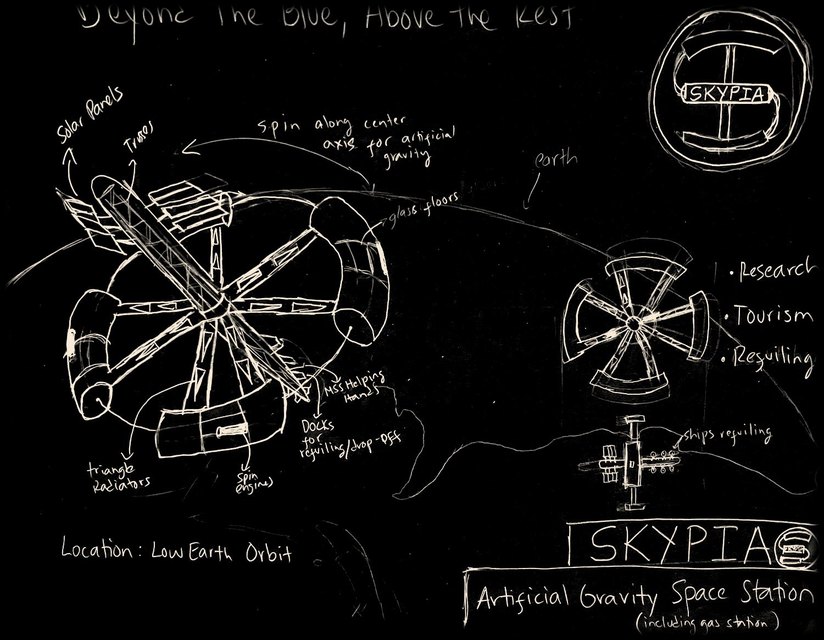 Beyond The Blue, Above The Rest
SKYPIA
Solar Panels
Trusses
spin along center
axis for artificial
gravity
earth
glass floors
• Research
• Tourism
• Refuiling
MSS Helping
Hands
Docks
for
refuiling/drop-off
triangle
Radiators
spin
engines
ships refuiling
Location: Low Earth Orbit
SKYPIA
Artificial Gravity Space Station
(including gas station)